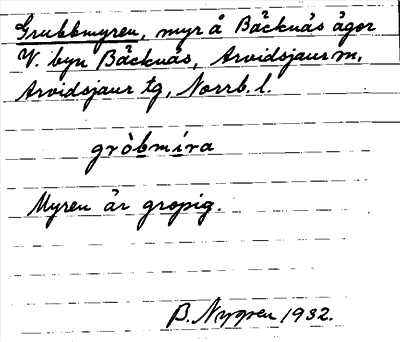 Grubbmyren, myr å Bäcknäs ägor
V. byn Bäcknäs, Arvidsjaur sn,
Arvidsjaur tg, Norrb. l.
gròbmíra
Myren är gropig.
B. Nygren 1932.